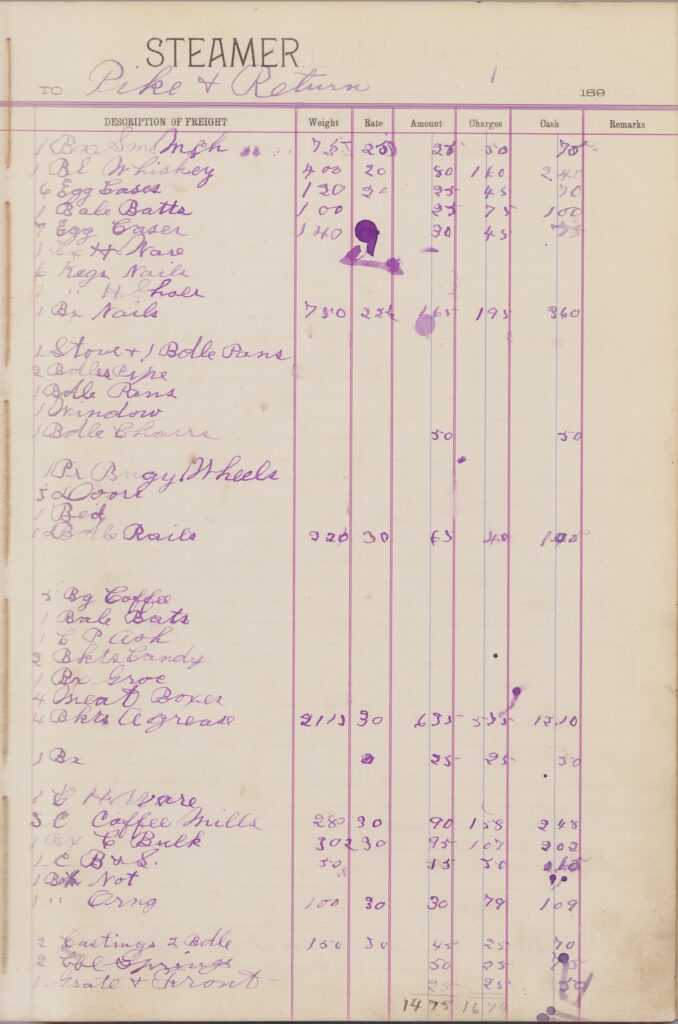 STEAMER
TO Pike & Return 189
DESCRIPTION OF FREIGHT Weight Rate Amount Charges Cash Remarks
1 Bx Sm Mgh 75 25 25 50 75
1 Bl Whiskey 400 20 80 160 240
6 Egg Cases 120 25 45 70
1 Bale Batts 100 25 75 100
7 Egg Cases 140 30 45 75
1 H Ware
6 Kegs Nails
1 " H Shoes
1 Bx Nails 750 22 165 195 360
2 Stove & 1 Bdle Pans
2 Bdles Pipe
1 Bdle Pans
1 Window
1 Bdle Chairs 50 50
1 Pr Bugy Wheels
5 Doors
1 Bed
Bdle Rails 220 30 65 40
5 Bg Coffee
1 Bale Bats
1 C P Ash
2 Bkts Candy
1 Bx Groc
4 Meat Boxes
4 Bkts A grease 2115 30 635 12 10
1 Bx 25 25 50
2 C H Ware
3 C Coffee Mills 280 30 90 158 248
1 Bx C Bulk 302 30 95 107 202
1 C B & S. 50 15 50
1 Not
1 " Arng 100 30 30 79 109
2 Castings 2 Bdle 150 30 45 25 70
2 Springs 50 25 75
1 Grate & Front 25 25 50
14 75 16